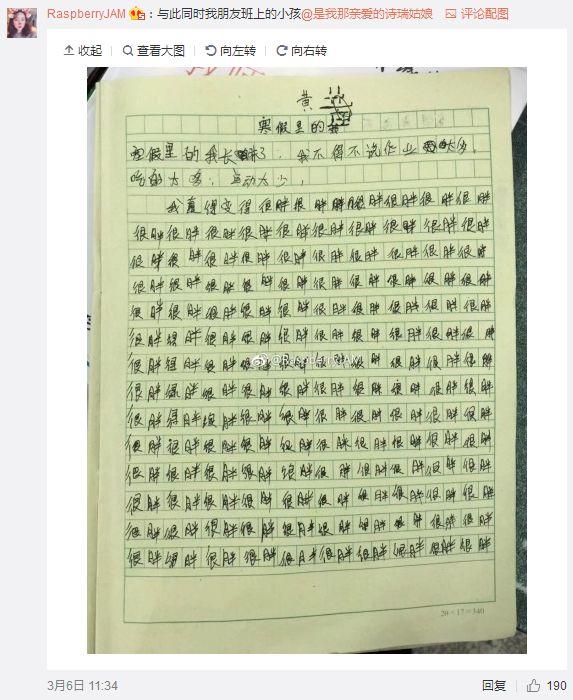 RaspberryJAM:与此同时我朋友班上的小孩@是我那亲爱的诗瑞姑娘 评论配图
收起 查看大图 向左转 向右转
黄
寒假里的我
寒假里的我长胖了,我不得不说作业太多,
吃的太多,运动太少,
我得变得很胖很胖胖很胖很胖很胖很胖
很胖很胖很胖很胖很胖很胖很胖很胖很胖很胖
很胖很胖很胖很胖很胖很胖很胖很胖很胖很胖
很胖很胖很胖很胖很胖很胖很胖很胖很胖很胖
很胖很胖很胖很胖很胖很胖很胖很胖很胖很胖
很胖很胖很胖很胖很胖很胖很胖很胖很胖很胖
很胖很胖很胖很胖很胖很胖很胖很胖很胖很胖
很胖很胖很胖很胖很胖很胖很胖很胖很胖很胖
很胖很胖很胖很胖很胖很胖很胖很胖很胖很胖
很胖很胖很胖很胖很胖很胖很胖很胖很胖很胖
很胖很胖很胖很胖很胖很胖很胖很胖很胖很胖
很胖很胖很胖很胖很胖很胖很胖很胖很胖很胖
很胖很胖很胖很胖很胖很胖很胖很胖很胖很胖
很胖很胖很胖很胖很胖很胖很胖很胖很胖很胖
@RaspberryJAM
20×17=340
3月6日 11:34 回复 190